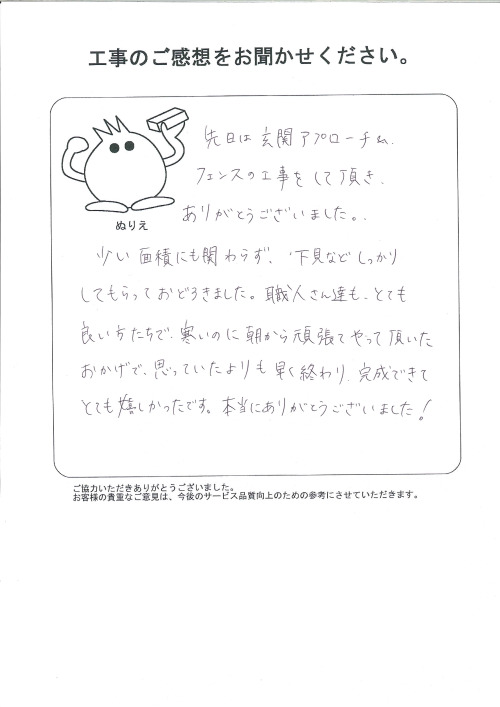 工事のご感想をお聞かせください。
先日は玄関アプローチ&
フェンスの工事をして頂き、
ありがとうございました。
ぬりえ
少い面積にも関わらず、下見などしっかり
してもらっておどろきました。職人さん達も、とても
良い方たちで、寒いのに朝から頑張てやって頂いた
おかげで、思っていたよりも早く終わり、完成できて
とても嬉しかったです。本当にありがとうございました!
ご協力いただきありがとうございました。
お客様の貴重なご意見は、今後のサービス品質向上のための参考にさせていただきます。